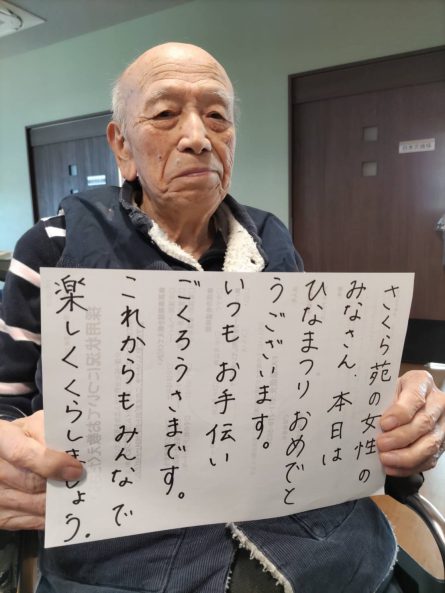 さくら苑の女性の
みなさん、本日は
ひなまつりおめでと
うございます。
いつもお手伝い
ごくろうさまです。
これからもみんなで
楽しくくらしましょう。